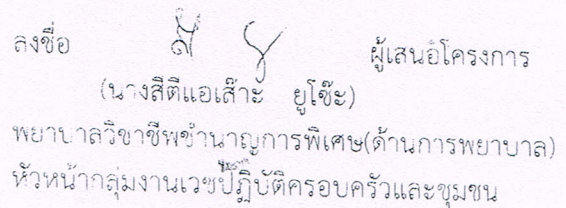 ลงชื่อ ผู้เสนอโครงการ
(นางสีตีแอเส๊าะ ยูโซ๊ะ)
พยาบาลวิชาชีพชำนาญการพิเศษ(ด้านการพยาบาล)
หัวหน้ากลุ่มงานเวชปฏิบัติครอบครัวและชุมชน